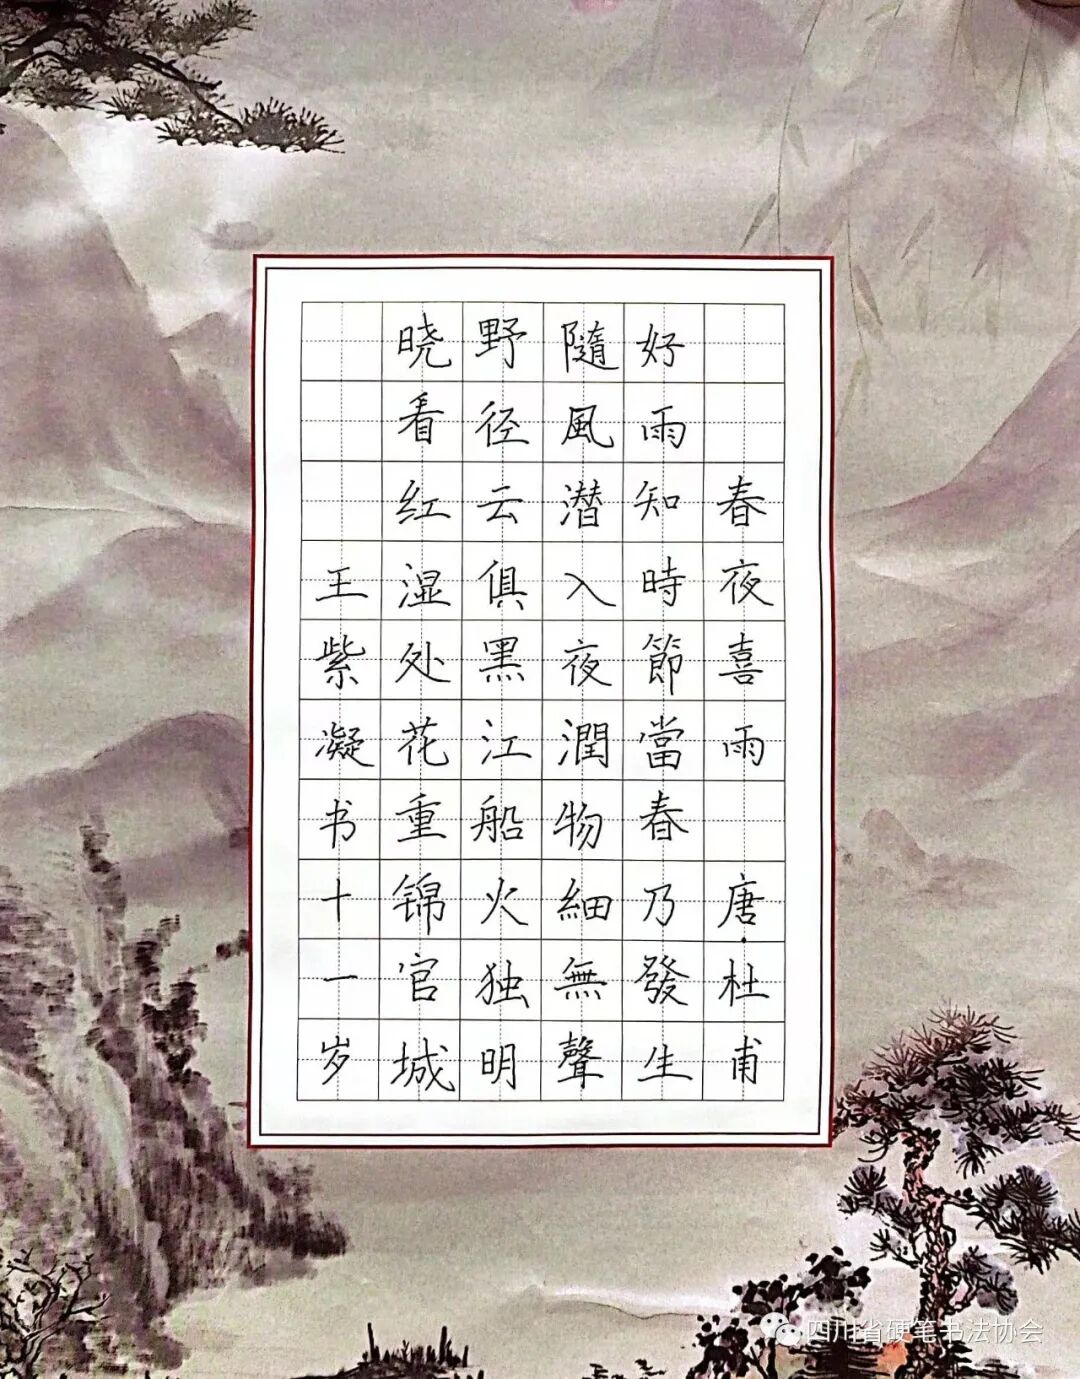 春夜喜雨 唐·杜甫
好雨知時節當春乃發生
隨風潜入夜潤物細無聲
野径云俱黑江船火独明
晓看红湿处花重锦官城
王紫凝书十一岁
四川省硬笔书法协会